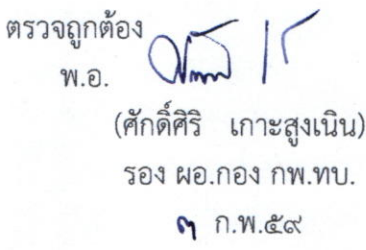 ตรวจถูกต้อง
พ.อ.
(ศักดิ์ศิริ เกาะสูงเนิน)
รอง ผอ.กอง กพ.ทบ.
๓ ก.พ.๕๙